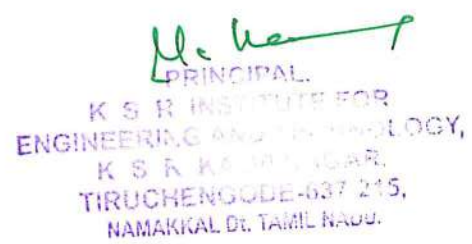 PRINCIPAL.
K S R INSTITUTE FOR
ENGINEERING AND TECHNOLOGY,
K S R
TIRUCHENGODE-637 215,
NAMAKKAL Dt. TAMIL NADU.